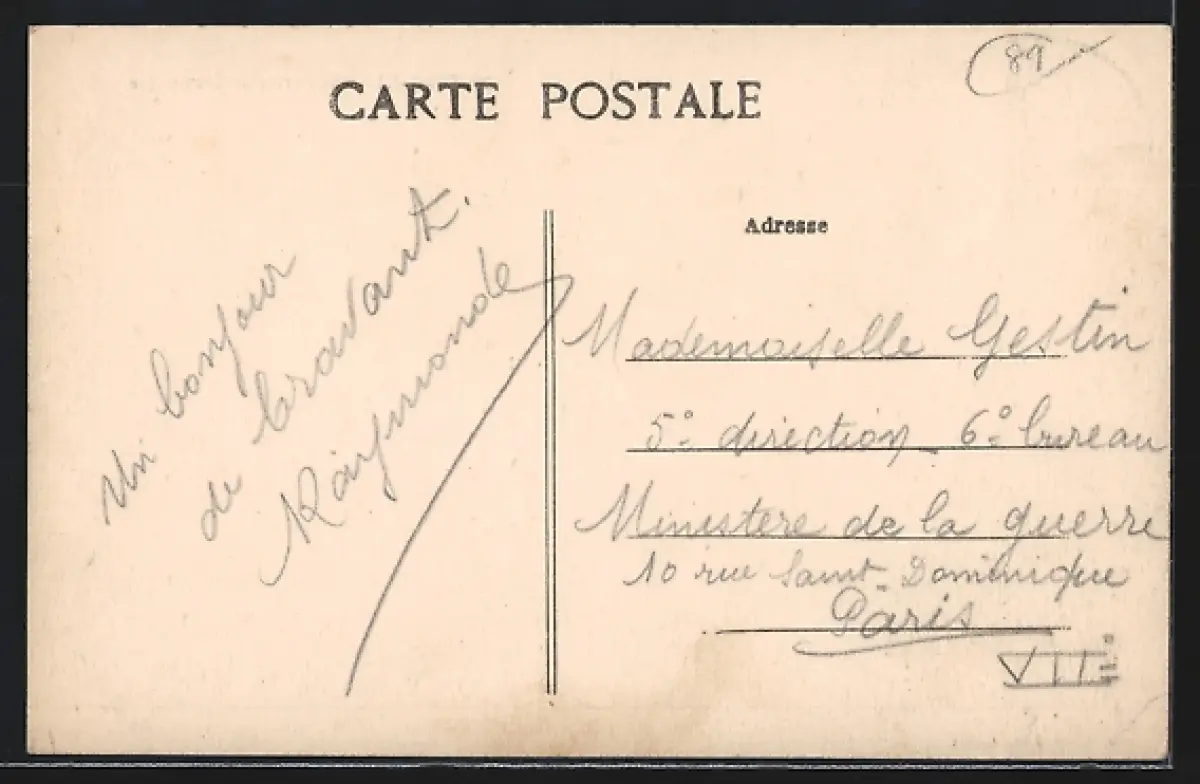 89
CARTE POSTALE
Un bonjour
de bravant.
Raymonde
Adresse
Mademoiselle Gestin
5° direction - 6° bureau
Ministere de la guerre
10 rue Saint-Dominique
Paris
VII°